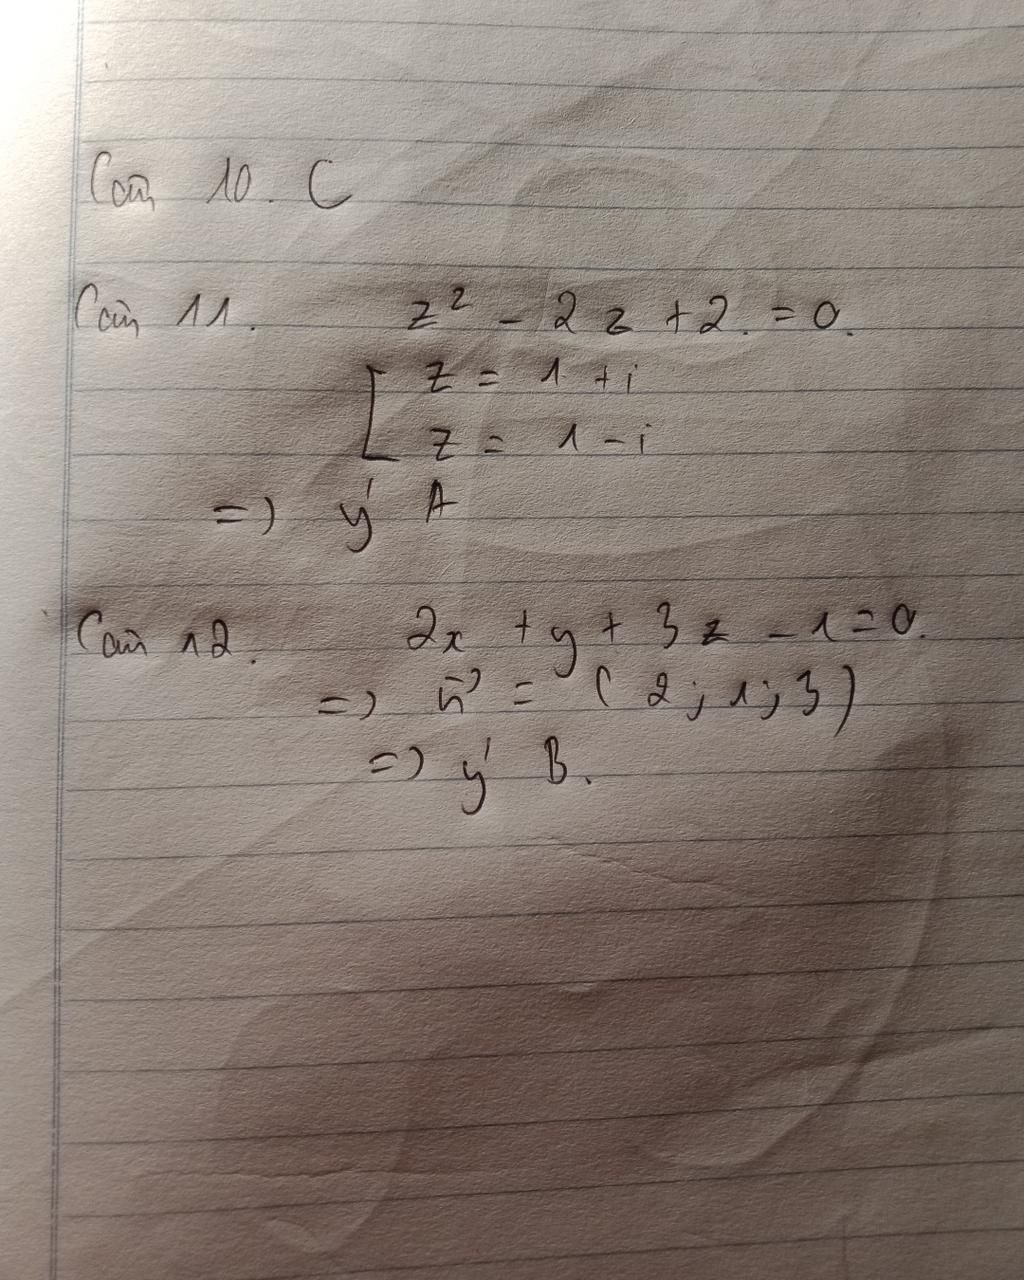 Câu 10. C
Câu 11. z² - 2z + 2. = 0.
[ z = 1 + i
z = 1 - i
=) ý A
Câu 12. 2x + y + 3z - 1 = 0.
=) n⃗ = (2; 1; 3)
=) ý B.